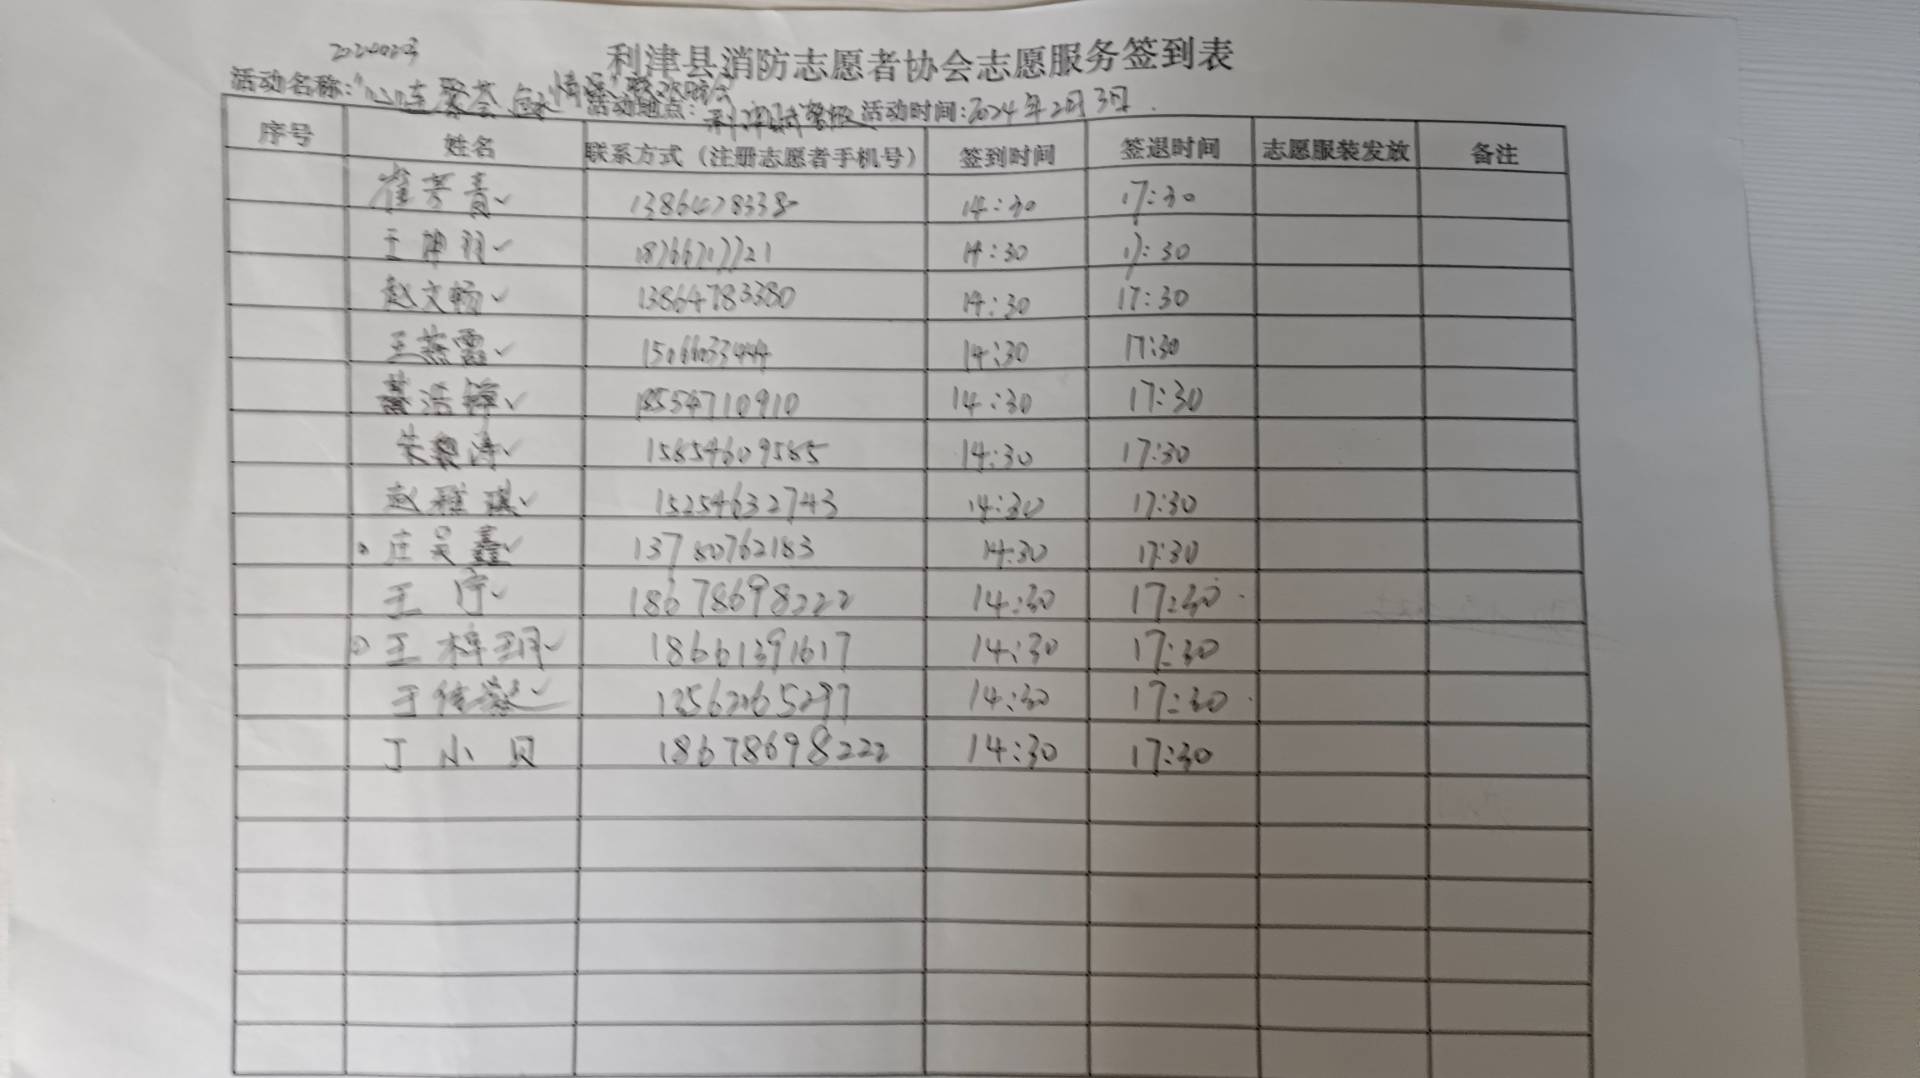 20240203
利津县消防志愿者协会志愿服务签到表
活动名称：“心连聚荟 鱼水情深”联欢晚会
活动地点： 活动时间：2024年2月3日.
序号 姓名 联系方式（注册志愿者手机号） 签到时间 签退时间 志愿服装发放 备注
崔芳青✓ 14:30 17:30
王 ✓ 14:30 17:30
赵文畅✓ 13864783380 14:30 17:30
王燕霞✓ 14:30 17:30
浩 ✓ 18554710910 14:30 17:30
15854609585 14:30 17:30
赵雅琪✓ 15254632743 14:30 17:30
庄昊鑫✓ 13780762183 14:30 17:30
王 ✓ 18678698222 14:30 17:30
王梓玥✓ 18661391617 14:30 17:30
✓ 14:30 17:30
丁小贝 18678698222 14:30 17:30